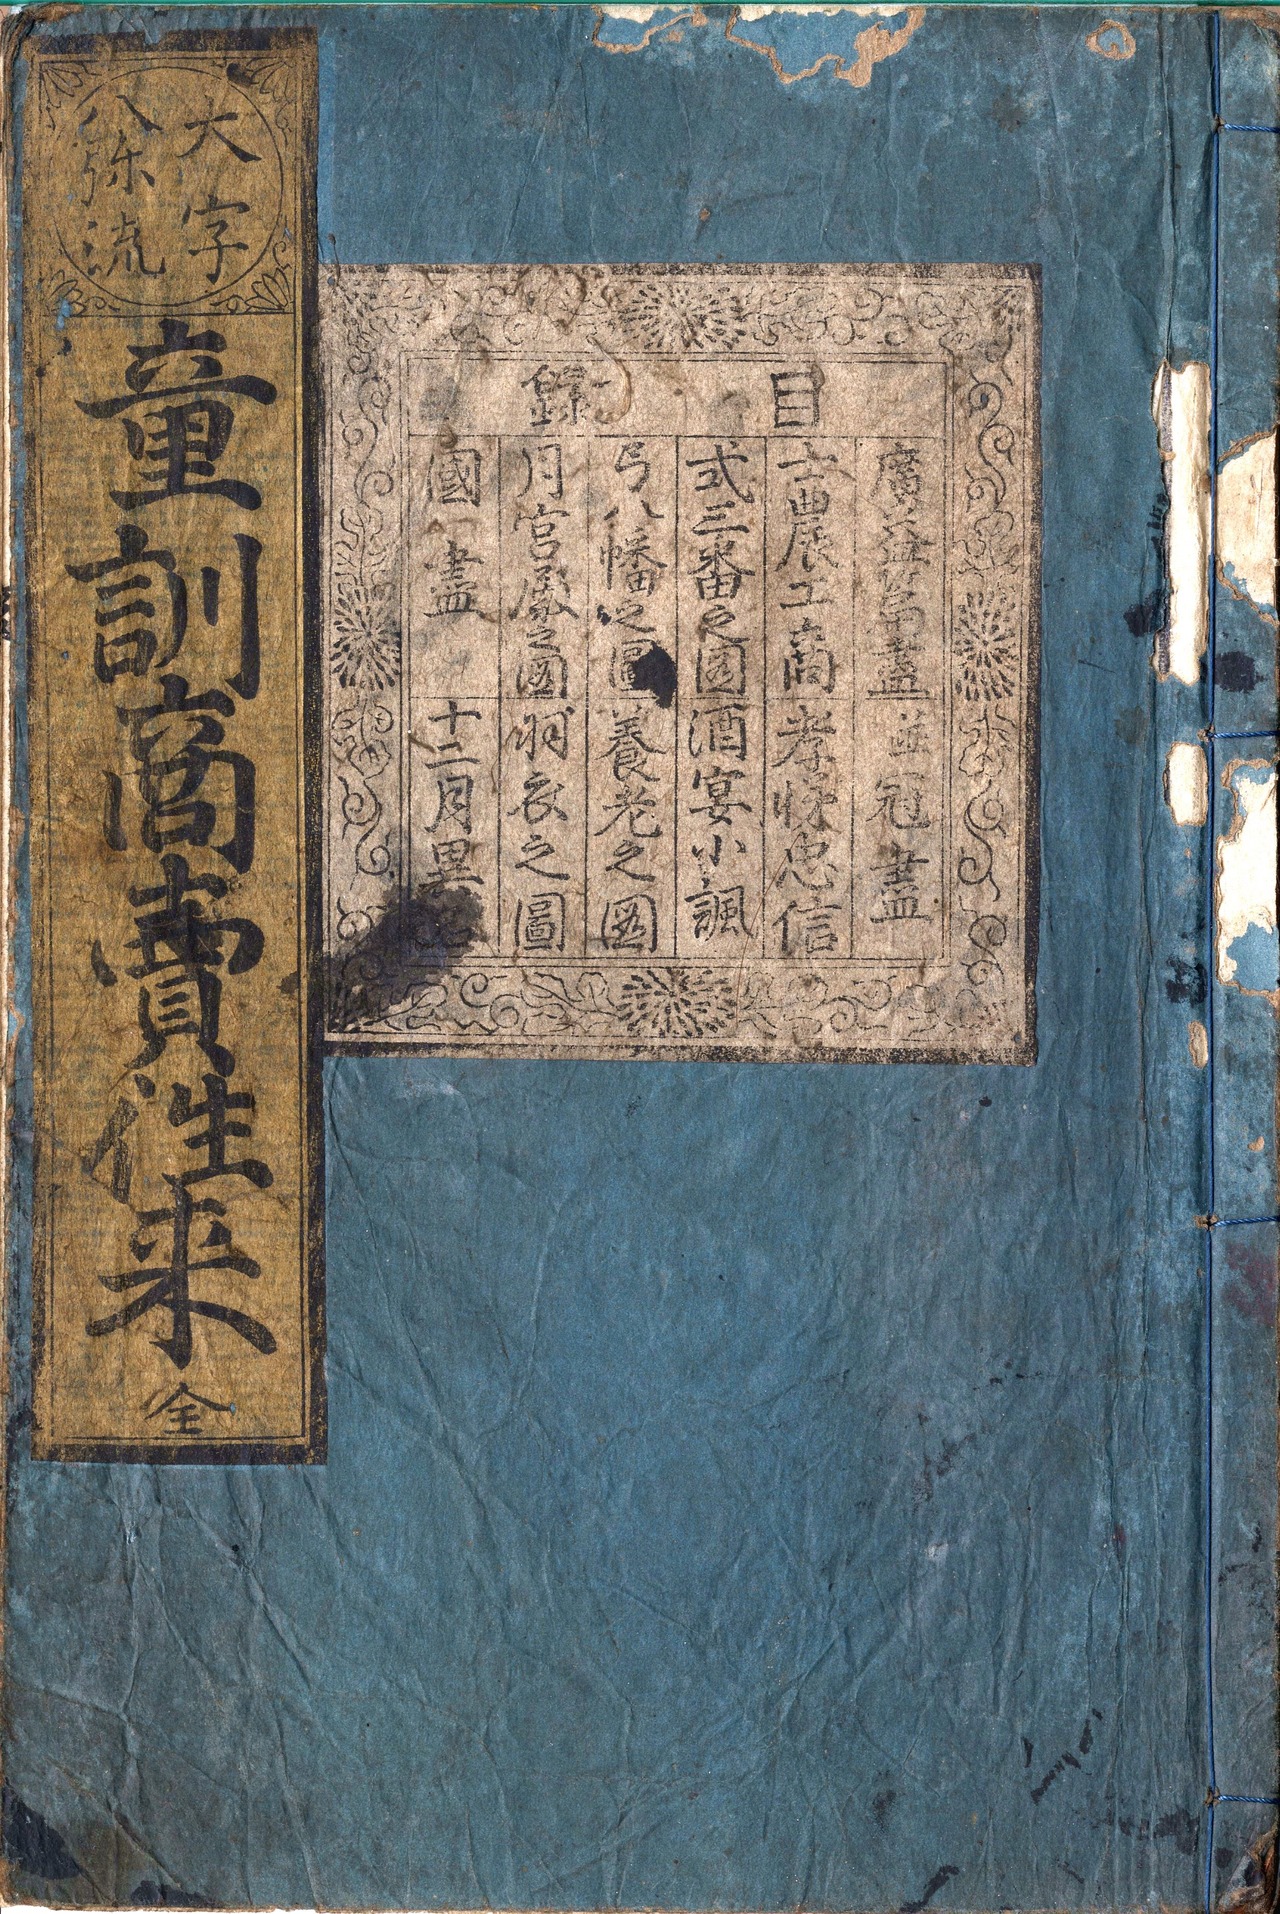 目録
廣益篇盡 並冠盡
士農工商 孝悌忠信
式三番之図 酒宴小諷
弓八幡之圖 養老之図
月宮殿之図 羽衣之圖
國盡 十二月異名
大字
八弥流
童訓商賣往来 全